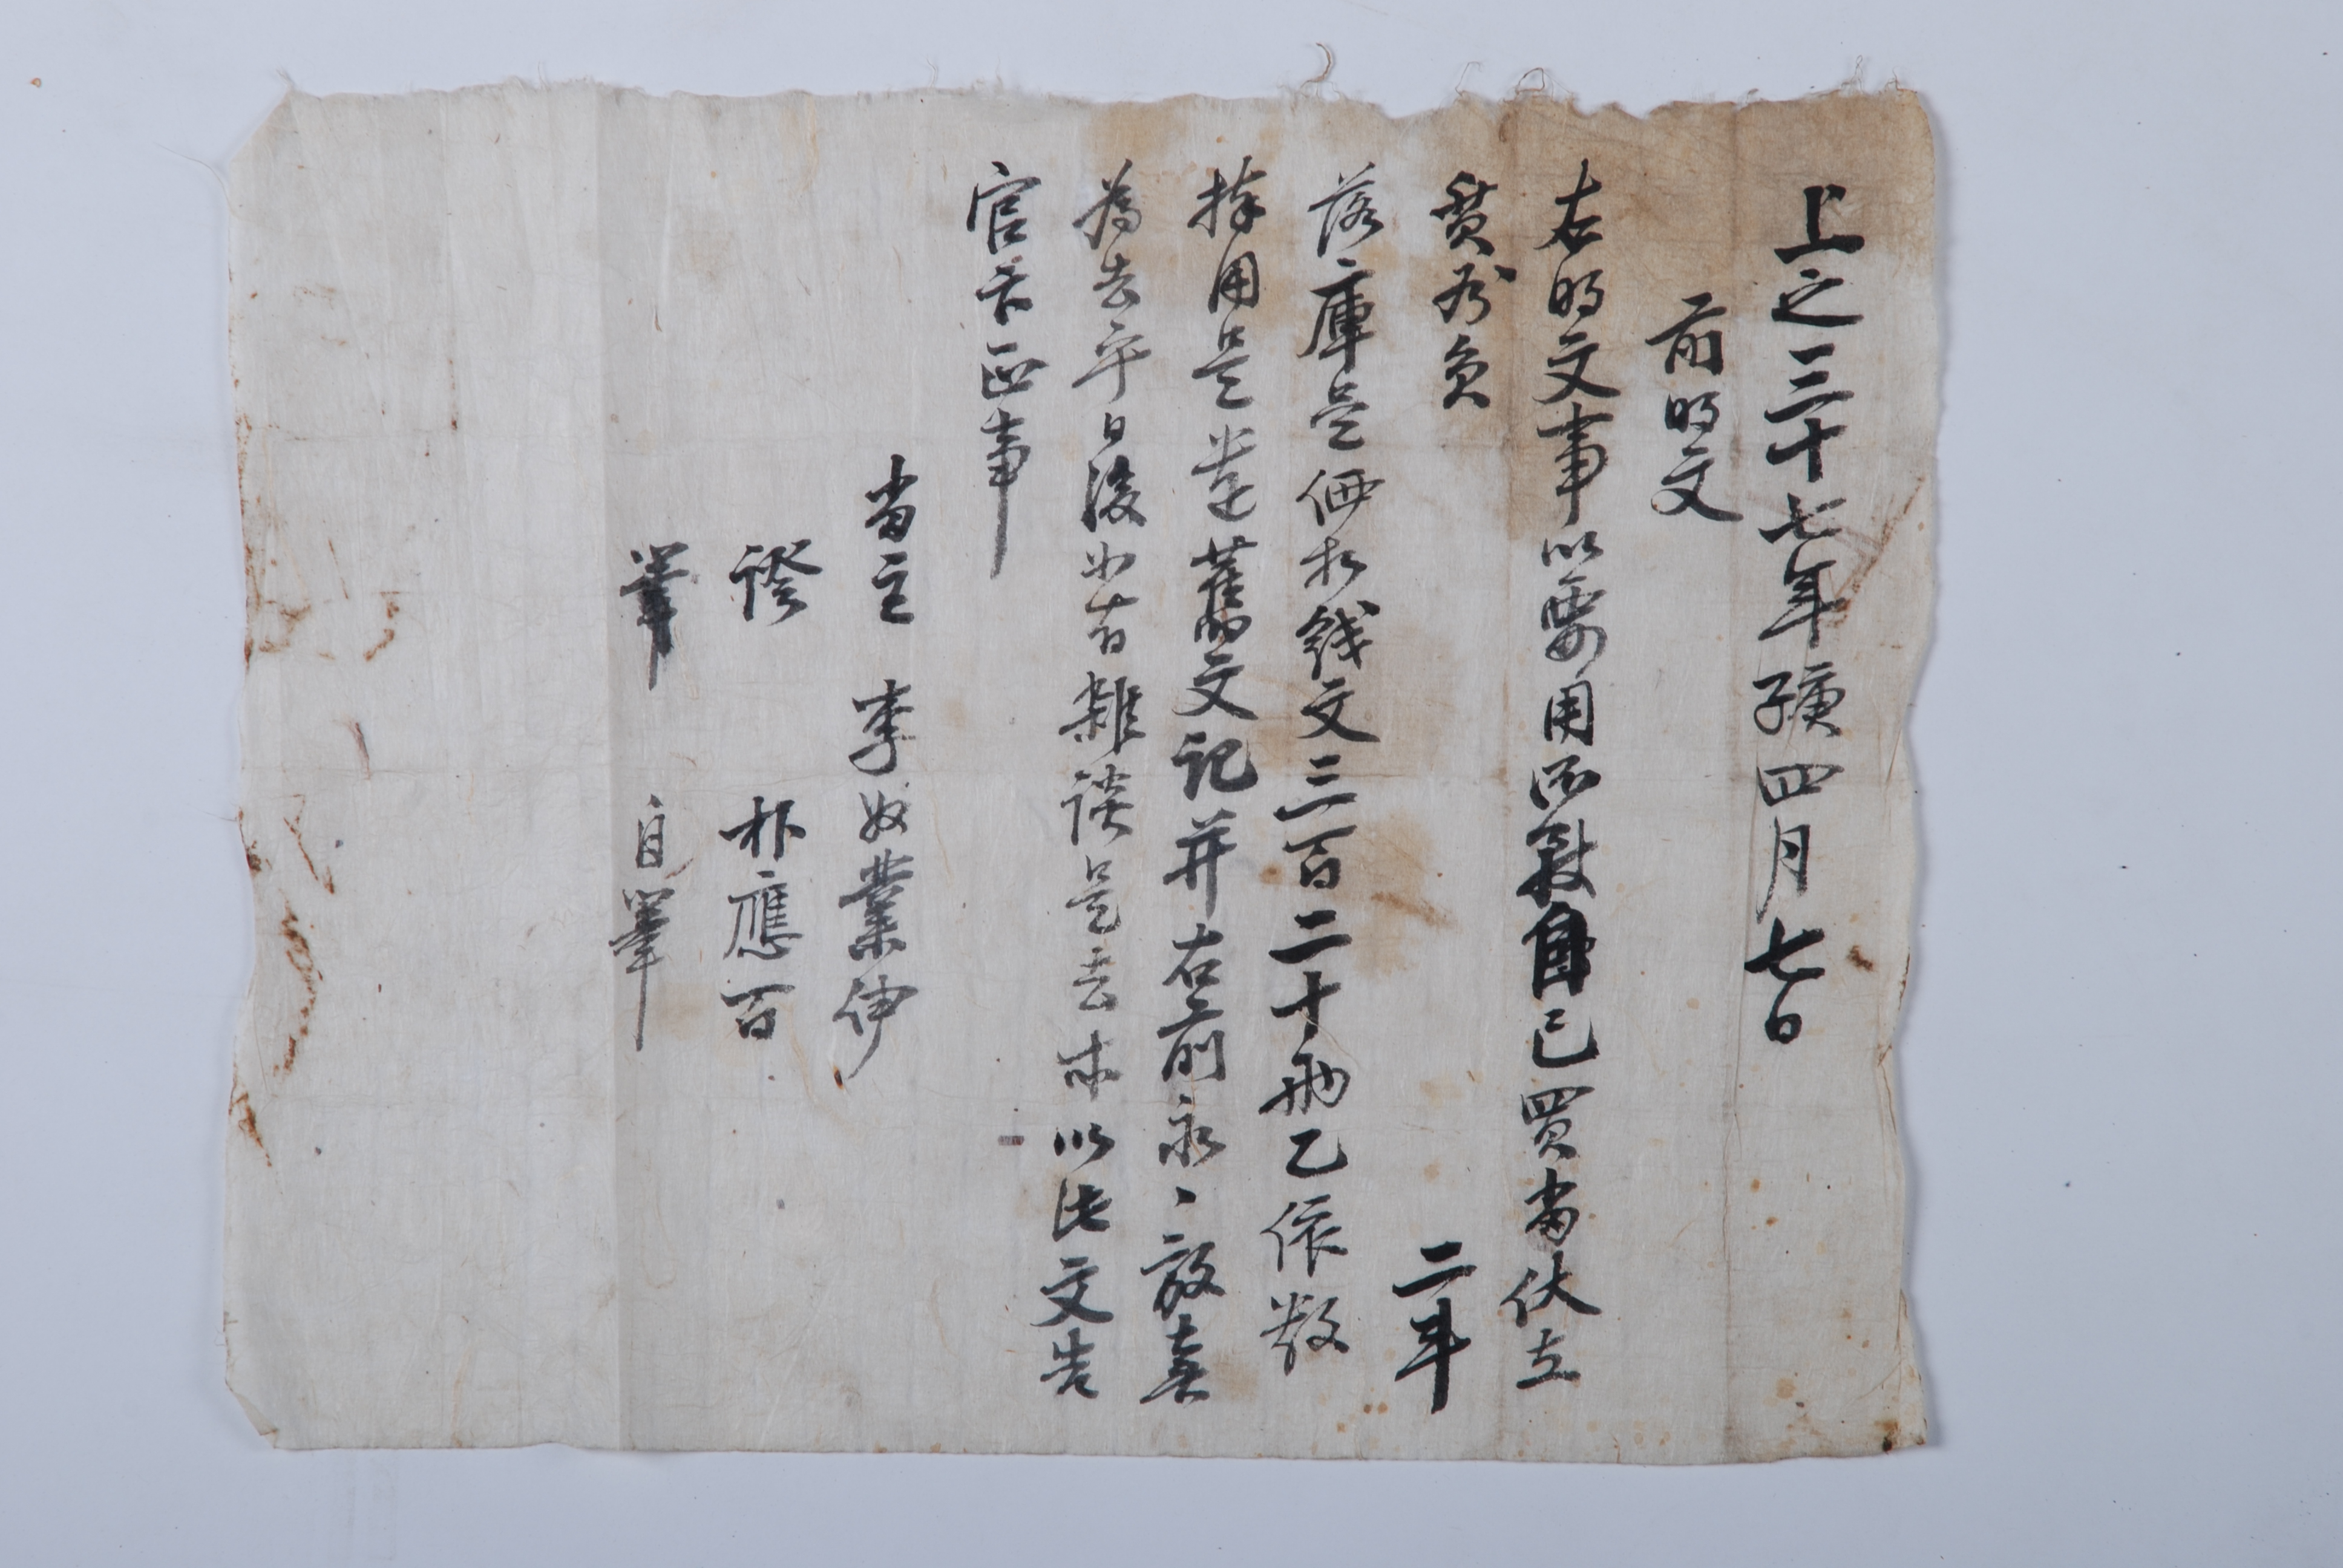 上之三十七年 四月七日
前明文
右明文事以要用所致自己買畓伏在
二斗
落庫㐣價折錢文三百二十兩乙依數
捧用是遣舊文記幷右前永、放賣
爲去乎日後如有雜談是去等以此文告
官卞正事
畓主 李奴業伊
證 朴應百
筆 自筆